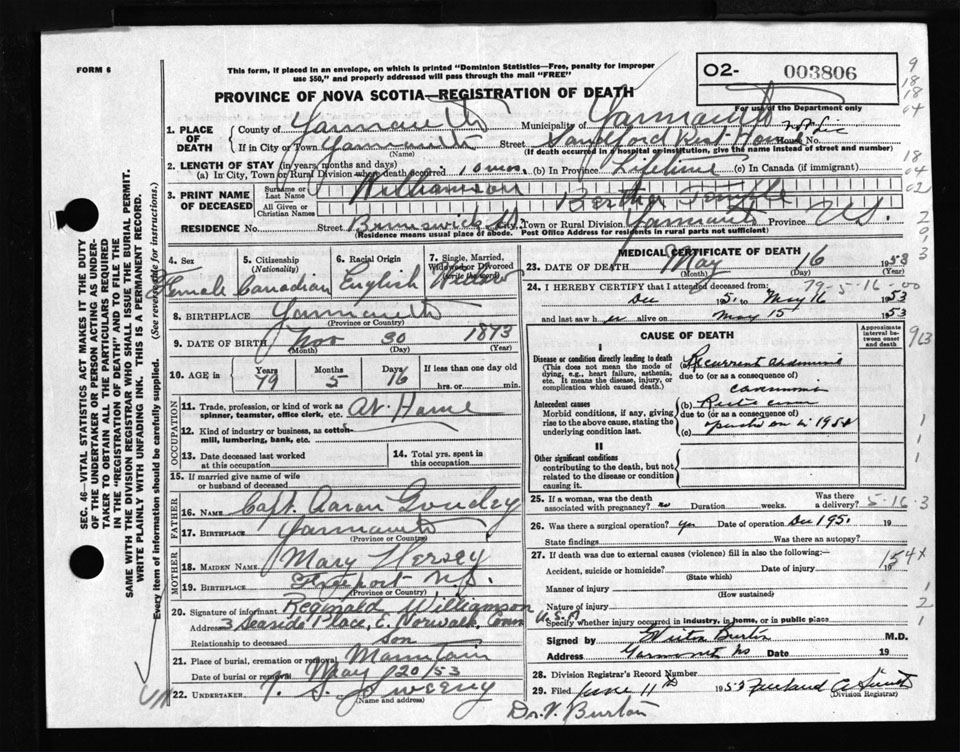 FORM 6
This form, if placed in an envelope, on which is printed "Dominion Statistics—Free, penalty for improper
use $50," and properly addressed will pass through the mail "FREE"
O2- 003806
For use of the Department only
PROVINCE OF NOVA SCOTIA—REGISTRATION OF DEATH
1. PLACE OF DEATH
County of Yarmouth Municipality of Yarmouth
If in City or Town Yarmouth Street Rest Home House No. not Lic
(Name) (If death occurred in a hospital or institution, give the name instead of street and number)
2. LENGTH OF STAY (in years, months and days)
(a) In City, Town or Rural Division where death occurred 10 mos. (b) In Province Lifetime (c) In Canada (if immigrant)
3. PRINT NAME OF DECEASED
Surname or Last Name Williamson
All Given or Christian Names Bertha
RESIDENCE No. Street Brunswick St. City, Town or Rural Division Yarmouth Province N.S.
(Residence means usual place of abode. Post Office Address for residents in rural parts not sufficient)
4. Sex Female
5. Citizenship (Nationality) Canadian
6. Racial Origin English
7. Single, Married, Widowed or Divorced (Write the word) Widow
8. BIRTHPLACE Yarmouth
(Province or Country)
9. DATE OF BIRTH Nov 30 1873
(Month) (Day) (Year)
10. AGE in Years 79 Months 5 Days 16 If less than one day old
hrs. or min.
OCCUPATION
11. Trade, profession, or kind of work as
spinner, teamster, office clerk, etc. At Home
12. Kind of industry or business, as cotton-
mill, lumbering, bank, etc.
13. Date deceased last worked
at this occupation
14. Total yrs. spent in
this occupation
15. If married give name of wife
or husband of deceased
FATHER
16. NAME Capt. Aaron Goudey
17. BIRTHPLACE Yarmouth
(Province or Country)
MOTHER
18. MAIDEN NAME Mary Hersey
19. BIRTHPLACE N.S.
(Province or Country)
20. Signature of informant Reginald Williamson
Address 3 Seaside Place, E. Norwalk, Conn U.S.A
Relationship to deceased son
21. Place of burial, cremation or removal Mountain
Date of burial or removal May 20/53
22. UNDERTAKER Sweeny
(Name and address)
MEDICAL CERTIFICATE OF DEATH
23. DATE OF DEATH May 16 1953
(Month) (Day)
79-5-16-00
24. I HEREBY CERTIFY that I attended deceased from:
Dec 1951 to May 16 1953
and last saw her alive on May 15 1953
CAUSE OF DEATH
Approximate interval between onset and death
I
Disease or condition directly leading to death
(This does not mean the mode of
dying, e.g., heart failure, asthenia,
etc. It means the disease, injury, or
complication which caused death.)
(a) Recurrent
due to (or as a consequence of)
Antecedent causes
Morbid conditions, if any, giving
rise to the above cause, stating the
underlying condition last.
(b)
due to (or as a consequence of)
(c) operation in
II
Other significant conditions
contributing to the death, but not
related to the disease or condition
causing it.
25. If a woman, was the death
associated with pregnancy? no Duration weeks. Was there a delivery?
5-16-3
26. Was there a surgical operation? yes Date of operation Dec 1951 19
State findings Was there an autopsy?
27. If death was due to external causes (violence) fill in also the following:—
Accident, suicide or homicide? Date of injury 19
(State which)
154X
Manner of injury
(How sustained)
Nature of injury
Specify whether injury occurred in industry, in home, or in public place
Signed by Burton M.D.
Address Yarmouth NS Date 19
28. Division Registrar's Record Number
29. Filed June 11th 1953
(Division Registrar)
Dr. V. Burton
SEC. 46—VITAL STATISTICS ACT MAKES IT THE DUTY
OF THE UNDERTAKER OR PERSON ACTING AS UNDER-
TAKER TO OBTAIN ALL THE PARTICULARS REQUIRED
IN THE "REGISTRATION OF DEATH" AND TO FILE THE
SAME WITH THE DIVISION REGISTRAR WHO SHALL ISSUE THE BURIAL PERMIT.
WRITE PLAINLY WITH UNFADING INK. THIS IS A PERMANENT RECORD.
Every item of information should be carefully supplied. (See reverse side for instructions.)